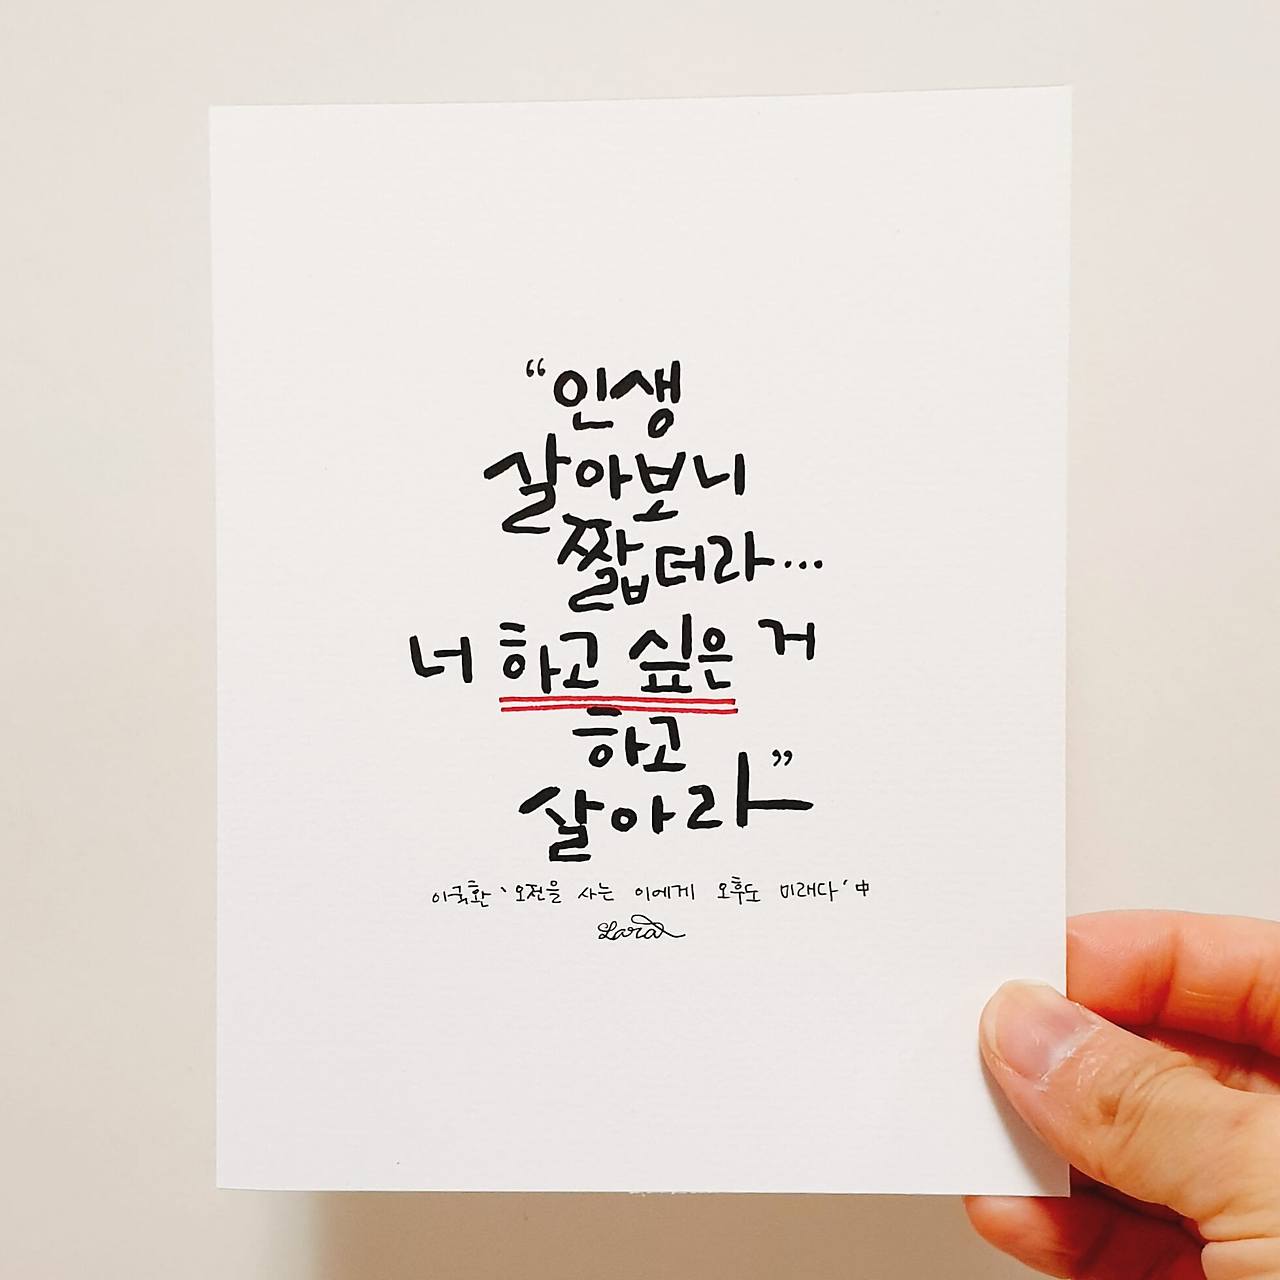 “인생
살아보니
짧더라...
너 하고 싶은 거
하고
살아라”
이국환 ‘오전을 사는 이에게 오후도 미래다’ 中
Lara